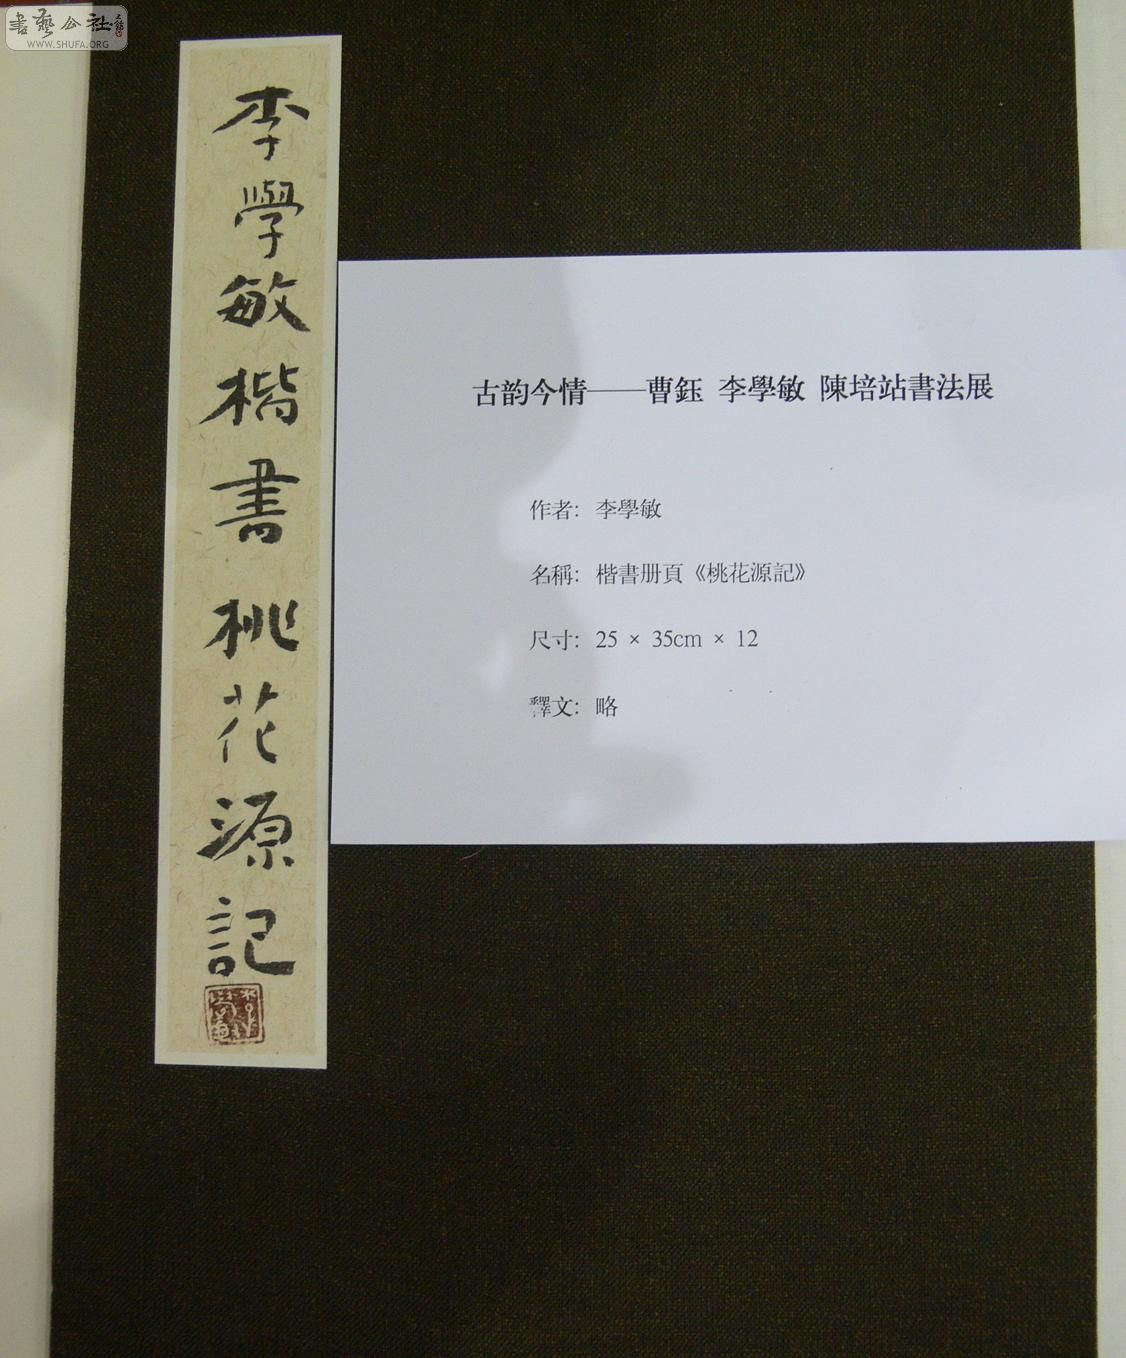 書藝公社
WWW.SHUFA.ORG
李學敏楷書桃花源記
古韵今情——曹鈺 李學敏 陳培站書法展
作者：李學敏
名稱：楷書册頁《桃花源記》
尺寸：25 × 35cm × 12
釋文：略